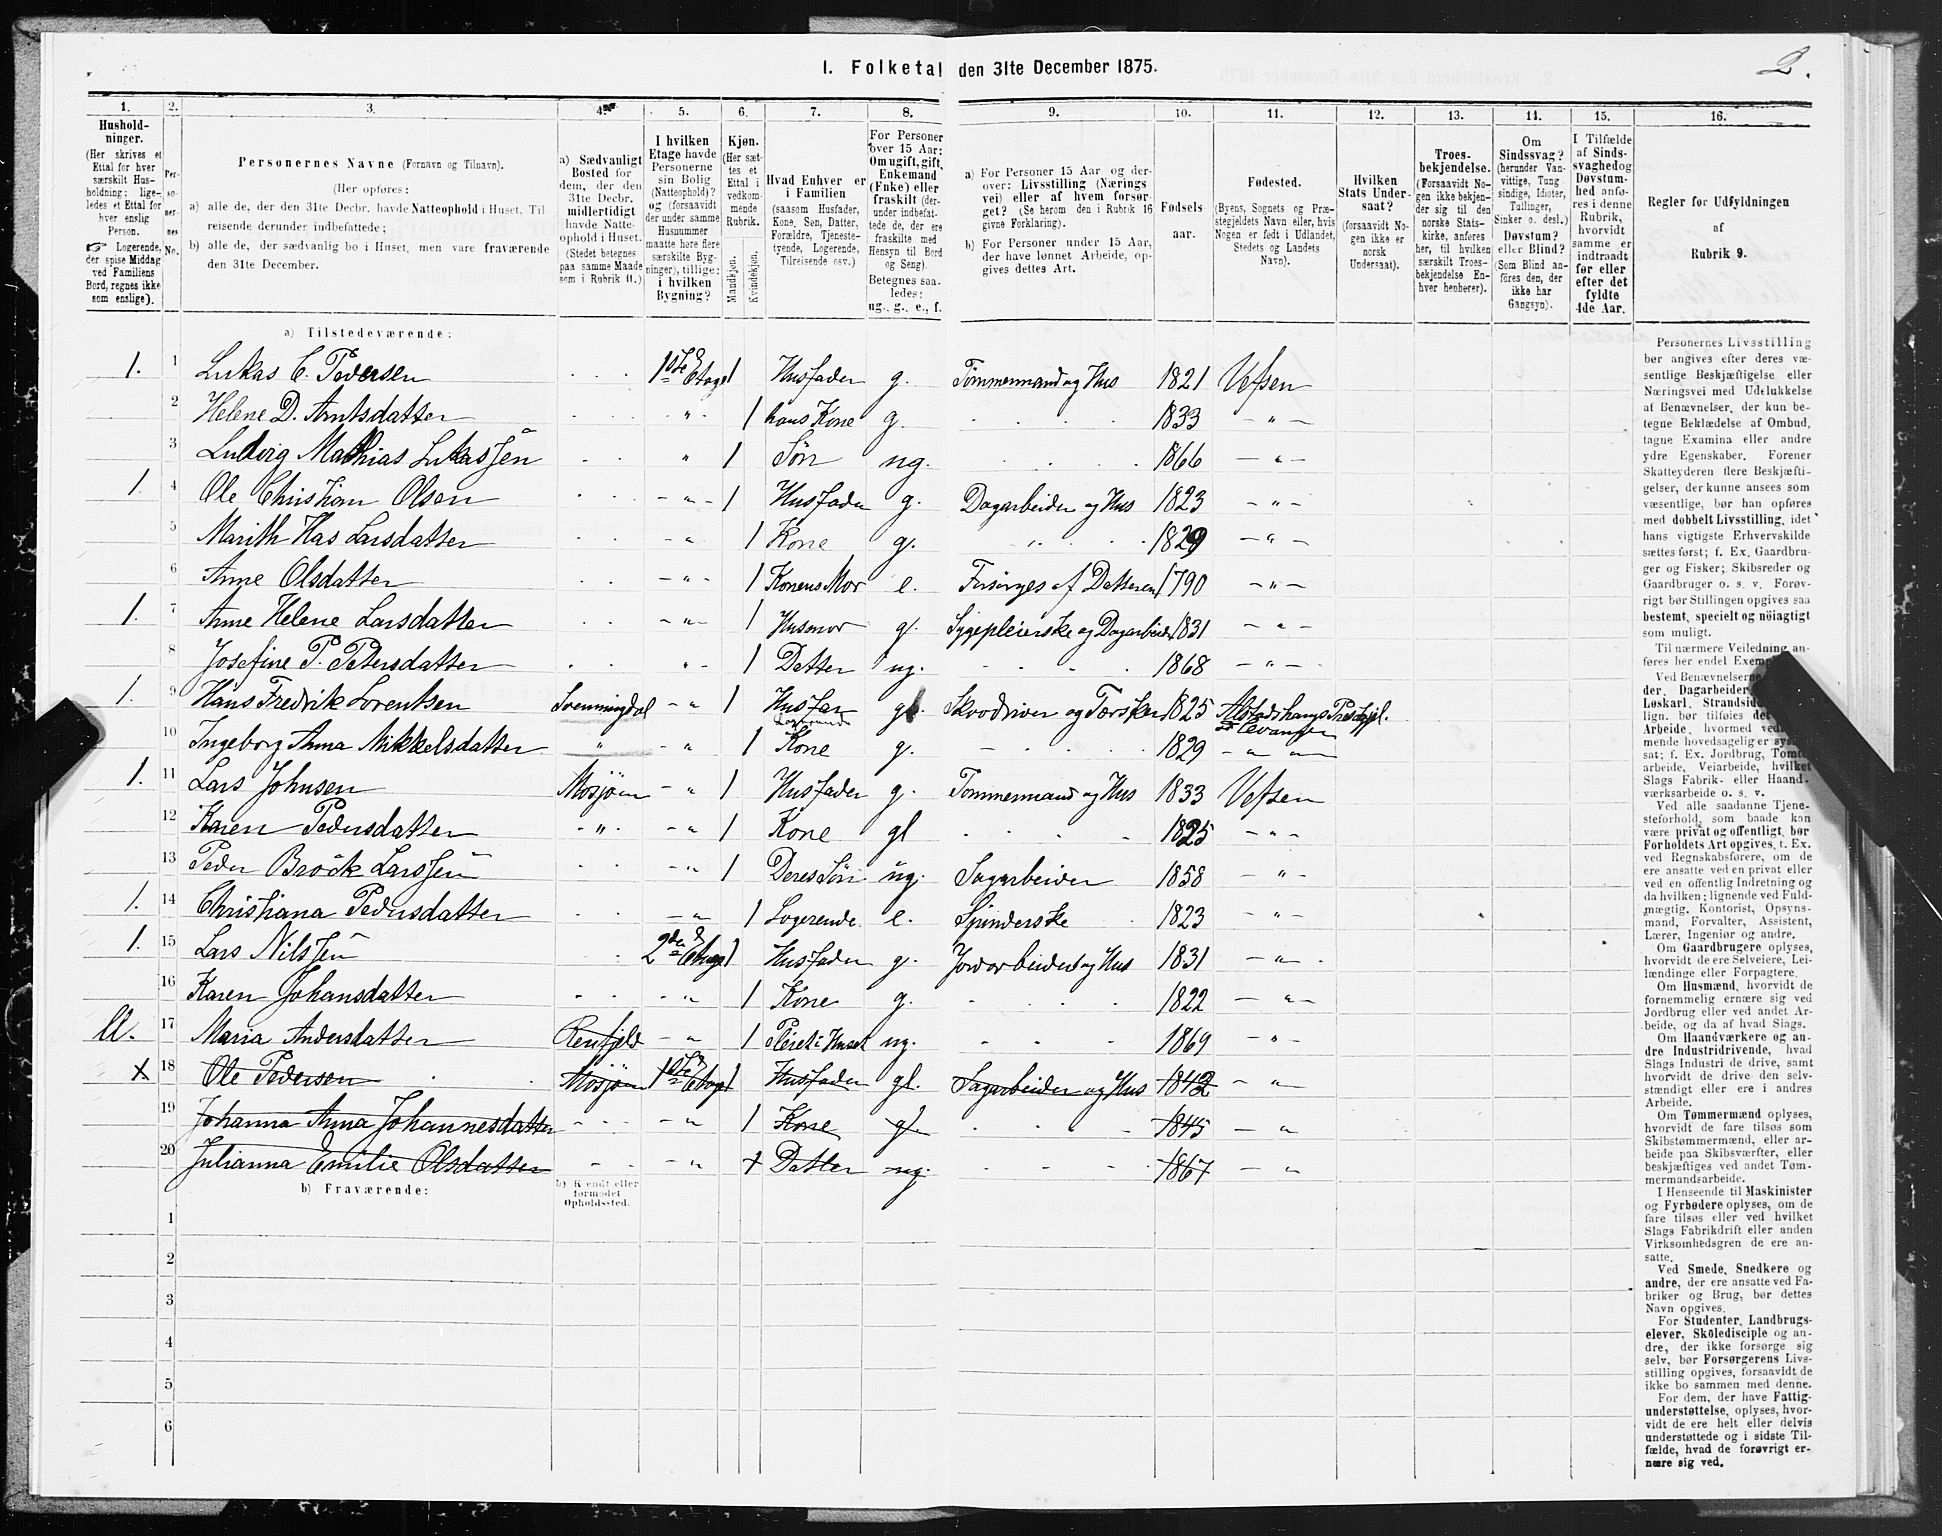 2.
1. Folketal den 31te December 1875.
1. 2. 3. 4. 5. 6. 7. 8. 9. 10. 11. 12. 13. 14. 15. 16.
Hushold-
ninger.
(Her skrives et
Ettal for hver
særskilt Hus-
holdning; lige-
ledes et Ettal for
hver enslig
Person.
☞ Logerende,
der spise Middag
ved Familiens
Bord, regnes ikke
som enslige).
Per-
so-
ner-
nes
No.
Personernes Navne (Fornavn og Tilnavn).
(Her opføres:
a) alle de, der den 31te Decbr. havde Natteophold i Huset, Til-
reisende derunder indbefattede;
b) alle de, der sædvanlig bo i Huset, men vare fraværende
den 31te December.
a) Sædvanligt
Bosted for
dem, der den
31te Decbr.
midlertidigt
havde Natte-
ophold i Huset.
(Stedet betegnes
paa samme Maade
som i Rubrik 11.)
I hvilken
Etage havde
Personerne
sin Bolig
(Natteophold)?
og (forsaavidt
der under samme
Husnummer
maatte høre flere
særskilte Byg-
ninger), tillige:
i hvilken
Bygning?
Kjøn.
(Her sæt-
tes et
Ettal i
vedkom-
mende
Rubrik.
Mandkjøn.
Kvindekjøn.
Hvad Enhver er
i Familien
(saasom Husfader,
Kone, Søn, Datter,
Forældre, Tjeneste-
tyende, Logerende,
Tilreisende osv.)
For Personer
over 15 Aar:
Om ugift, gift,
Enkemand
(Enke) eller
fraskilt (der-
under indbefat-
tede de, der ere
fraskilte med
Hensyn til Bord
og Seng).
Betegnes saa-
ledes:
ug., g., e., f.
a) For Personer 15 Aar og der-
over: Livsstilling (Nærings
vei) eller af hvem forsør-
get? (Se herom den i Rubrik 16
givne Forklaring).
b) For Personer under 15 Aar,
der have lønnet Arbeide, op-
gives dettes Art.
Fødsels-
aar.
Fødested.
(Byens, Sognets og Præ-
stegjeldets Navn eller, hvis
Nogen er født i Udlandet,
Stedets og Landets
Navn).
Hvilken
Stats Under-
saat?
(forsaavidt No-
gen ikke er
norsk
Undersaat).
Troes-
bekjendelse.
(Forsaavidt No-
gen ikke bekjen-
der sig til den
norske Stats-
kirke, anføres
her, til hvilken
særskilt Troes-
bekjendelse En-
hver henhører).
Om
Sindssvag?
(herunder Van-
vittige, Tung
sindige, Idioter,
Tullinger,
Sinker o. desl.)
Døvstum?
eller Blind?
(Som Blind an-
föres den, der
ikke har
Gangsyn).
I Tilfælde
af Sinds-
svaghed og
Døvstum-
hed anfø-
res i denne
Rubrik,
hvorvidt
samme er
indtraadt
før eller
efter det
fyldte
4de Aar.
Regler for Udfyldningen
af
Rubrik 9.
a) Tilstedeværende:
1. 1 Lukas C. Pedersen 1ste Etage 1 Husfader g. Tømmermand og Hus 1821 Vefsen
2 Helene D. Arntsdatter " 1 hans Kone g. 1833 "
3 Ludvig Mathias Lukassen " 1 Søn ug. 1866 "
1. 4 Ole Christian Olsen " 1 Husfader g. Dagarbeider og Hus 1823 "
5 Marith Kas Larsdatter " 1 Kone g. " 1829 "
6 Anne Olsdatter " 1 Konens Mor e. Forsørges af Datteren 1790 "
1. 7 Anne Helene Larsdatter " 1 Husmor g. Sygepleierske og Dagarbeider 1831 "
8 Josefine P. Petersdatter " 1 Datter ug. 1868 "
1. 9 Hans Fredrik Lorentsen Svenningdal " 1 Husfar Logerende g. Skoodriver og Torsker 1825 Alstadhaugs Præstgjl.
10 Ingeborg Anna Nikkelsdatter " " 1 Kone g. 1829 " "
1. 11 Lars Johnsen Mosjøen " 1 Husfader g. Tømmermand og Hus 1833 Vefsen
12 Karen Pedersdatter " " 1 Kone g 1825 "
13 Peder Brock Larssen " 1 Deres Søn ug. Sagarbeider 1858 "
1. 14 Christiana Pedersdatter " 1 Logerende e. Spinderske 1823 "
1. 15 Lars Nilssen 2den Etage 1 Husfader g. Jordarbeider og Hus 1831 "
16 Karen Johansdatter " 1 Kone g. 1822 "
17 Maria Andersdatter Renfjeld " 1 Pleiet i Huset ug. 1869 "
x 18 Ole Pedersen Mosjøen 1ste Etage 1 Husfader g. Sagarbeider og Hus 1842 "
19 Johanna Anna Johannesdatter " 1 Kone g. 1845 "
20 Julianna Emilie Olsdatter " 1 Datter ug. 1867 "
b) Fraværende:
b) Kjendt eller
formodet
Opholdssted.
1
2
3
4
5
6
Personernes Livsstilling
bør angives efter deres væ-
sentlige Beskjæftigelse eller
Næringsvei med Udelukkelse
af Benævnelser, der kun be-
tegne Beklædelse af Ombud,
tagne Examina eller andre
ydre Egenskaber. Forener
Skatteyderen flere Beskjæfti-
gelser, der kunne ansees som
væsentlige, bør han opføres
med dobbelt Livsstilling, idet
hans vigtigste Erhvervskilde
sættes først; f. Ex. Gaardbru-
ger og Fisker; Skibsreder og
Gaardbruger o. s. v. Forøv-
rigt bør Stillingen opgives saa
bestemt, specielt og nöiagtigt
som muligt.
Til nærmere Veiledning an-
føres her endel
Ved Benævnelserne
der, Dagarbeider,
Løskarl, Strandsid
lign. bør tilføies
Arbeide, hvormed
mende hovedsagelig er
sat; f. Ex. Jordbrug, Tomt-
arbeide, Veiarbeide, hvilket
Slags Fabrik- eller Haand-
værksarbeide o. s. v.
Ved alle saadanne Tjene-
steforhold, som baade kan
være privat og offentligt, bør
Forholdets Art opgives, t. Ex.
ved Regnskabsførere, om de
ere ansatte ved en privat eller
ved en offentlig Indretning og
da hvilken; lignende ved Fuld-
mægtig, Kontorist, Opsyns-
mand, Forvalter, Assistent,
Lærer, Ingeniør og andre.
Om Gaardbrugere oplyses,
hvorvidt de ere Selveiere, Lei-
lændinge eller Forpagtere.
Om Husmænd, hvorvidt de
fornemmelig ernære sig ved
Jordbrug eller ved andet Ar-
beide, og da af hvad Slags.
Om Haandværkere og an-
dre Industridrivende, hvad
Slags Industri de drive, samt
hvorvidt de drive den selv-
stændigt eller ere i andres
Arbeide.
Om Tømmermænd oplyses,
hvorvidt de fare tilsøs som
Skibstømmermænd, eller ar-
beide paa Skibsværfter, eller
beskjæftiges ved andet Tøm-
mermandsarbeide.
I Henseende til Maskinister
og Fyrbødere oplyses, om de
fare tilsøs eller ved hvilket
Slags Fabrikdrift eller anden
Virksomhedsgren de ere an-
satte.
Ved Smede, Snedkere og
andre, der ere ansatte ved Fa-
briker og Brug, bør dettes
Navn opgives.
For Studenter, Landbrugs-
elever, Skoledisciple og an-
dre, der ikke forsørge sig
selv, bør Forsørgerens Livs-
stilling opgives, forsaavidt de
ikke bo sammen med denne.
For dem, der have Fattig-
understøttelse, oplyses, hvor-
vidt de ere helt eller delvis
understøttede og i sidste Til-
fælde, hvad de forøvrigt er-
nære sig ved.